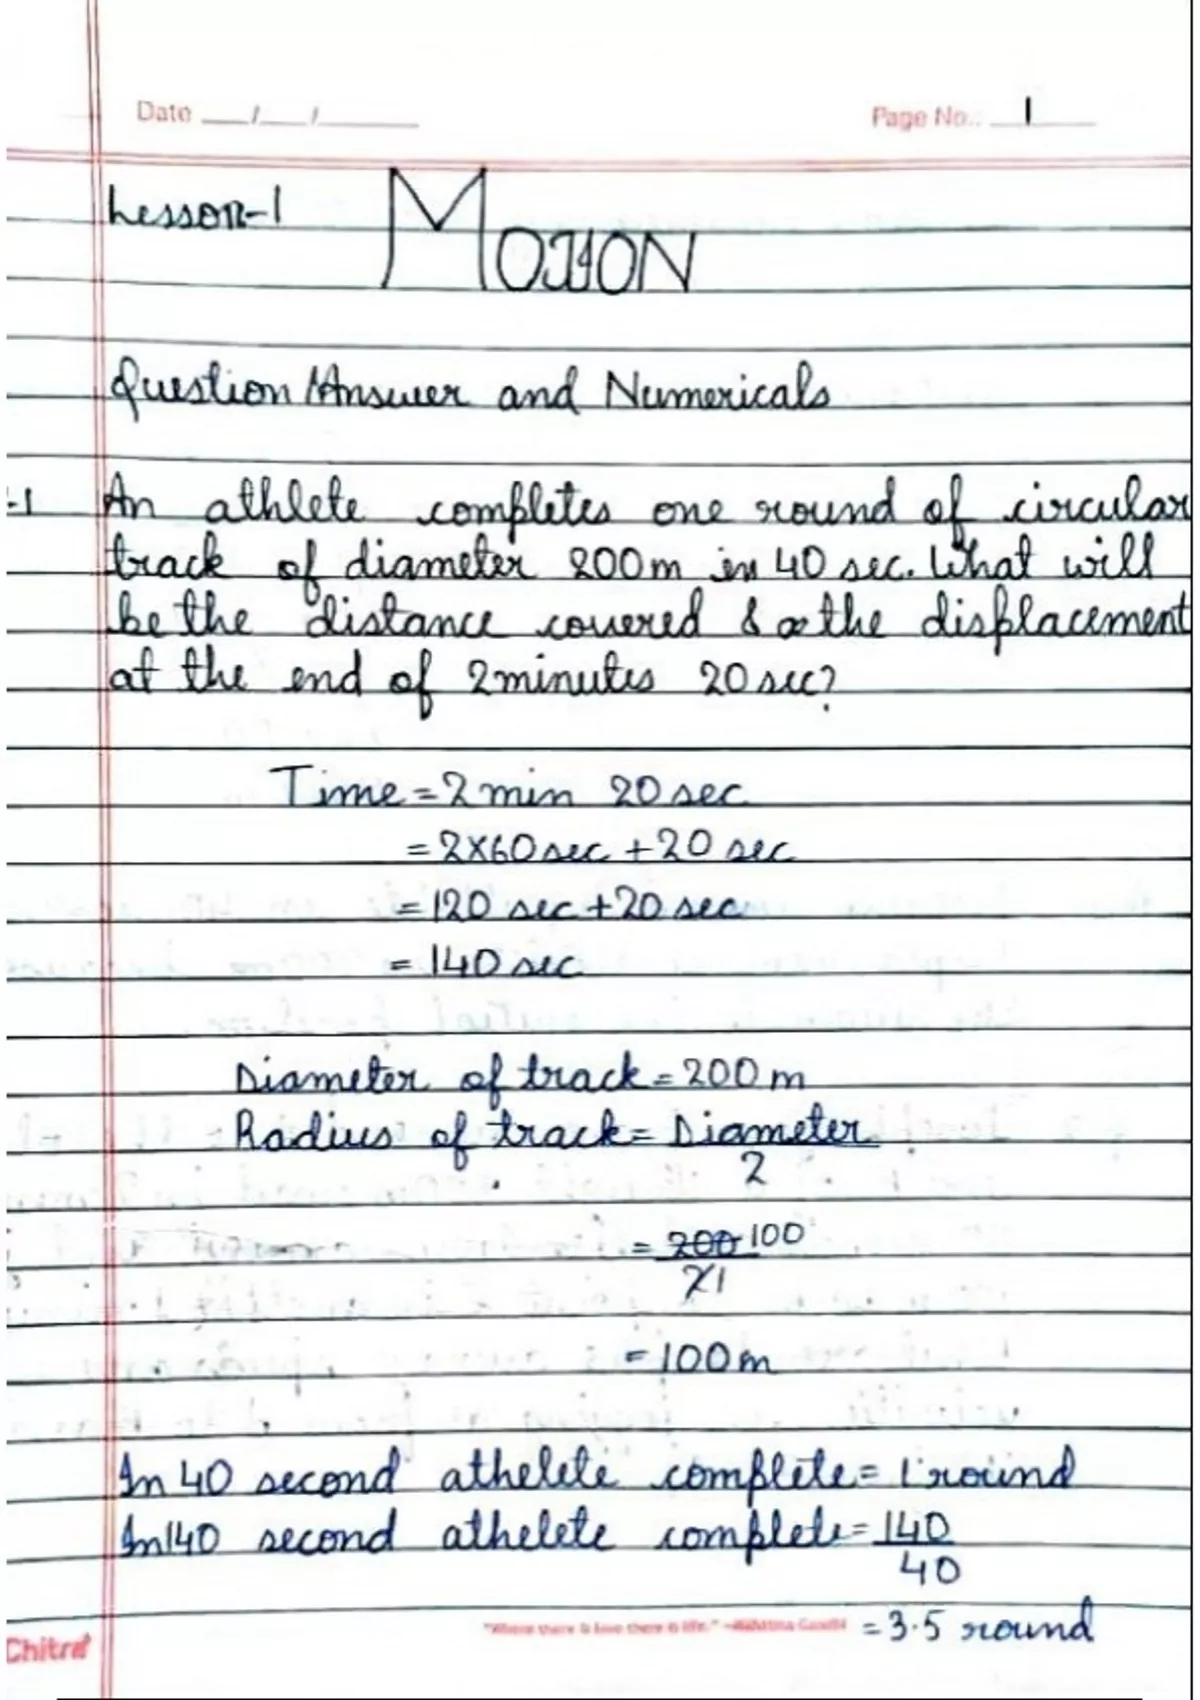 Date __/__/____
Page No.: 1
Lesson-1
MOTION
Question/Answer and Numericals
-1 An athlete completes one round of circular
track of diameter 200m in 40 sec. What will
be the distance covered & the displacement
at the end of 2minutes 20 sec?
Time = 2 min 20 sec
= 2×60 sec + 20 sec
= 120 sec + 20 sec
= 140 sec
Diameter of track = 200 m
Radius of track = Diameter
2
= 200 100
2 1
= 100m
In 40 second athelete complete = 1 round
In 140 second athelete complete = 140
40
= 3.5 round
"Where there is love there is life." –Mahatma Gandhi
Chitra